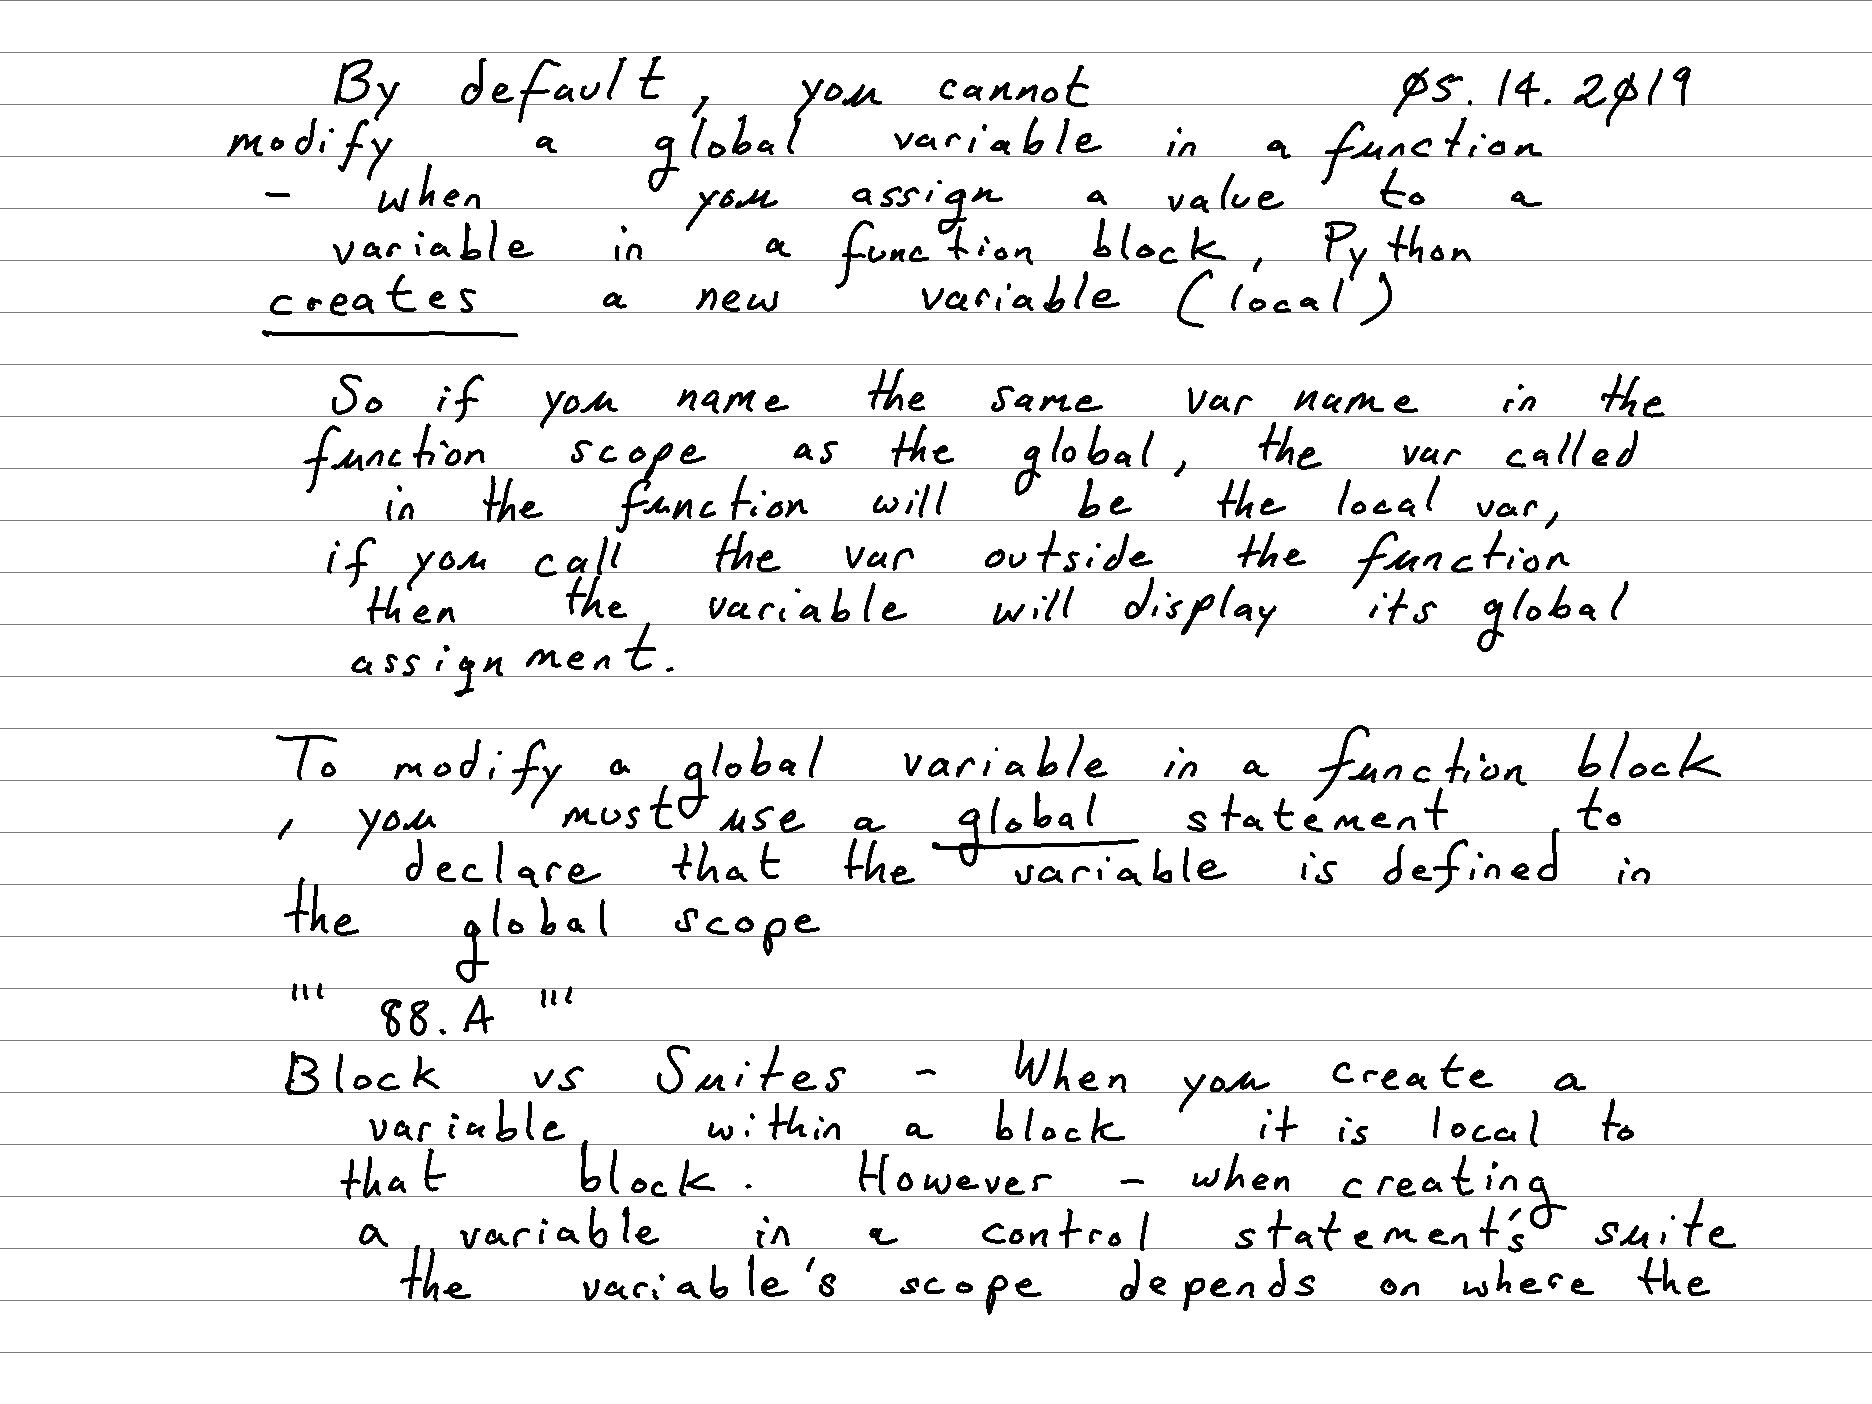 By default, you cannot 05.14.2019
modify a global variable in a function
- when you assign a value to a
variable in a function block, Python
creates a new variable (local)
So if you name the same var name in the
function scope as the global, the var called
in the function will be the local var,
if you call the var outside the function
then the variable will display its global
assignment.
To modify a global variable in a function block
, you must use a global statement to
declare that the variable is defined in
the global scope
''' 88.A '''
Block vs Suites - When you create a
variable within a block it is local to
that block. However - when creating
a variable in a control statement's suite
the variable's scope depends on where the